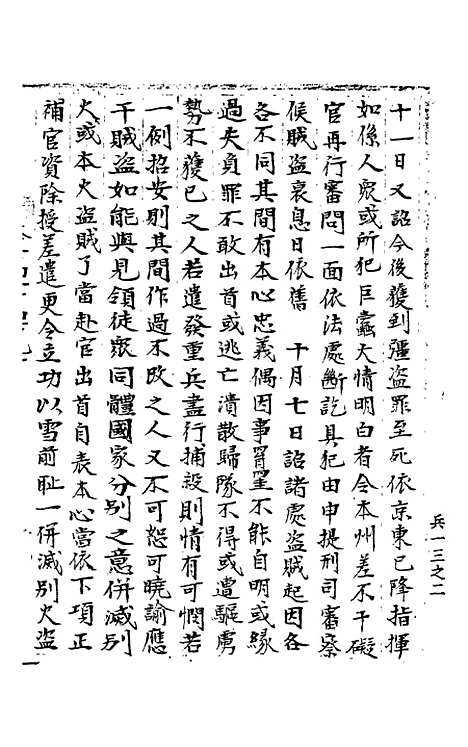 兵一三之二
十一日又詔今後獲到彊盗罪至死依京東已降指揮
如係人衆或所犯巨蠹大情明白者令本州差不干礙
官再行審問一面依法處斷訖具犯由申提刑司審察
候賊盗衰息日依舊　十月七日詔諸處盗賊起因各
各不同其間有本心忠義偶因事罣不能自明或緣
過失負罪不敢出首或逃亡潰散歸隊不得或遭驅虜
勢不獲已之人若遣發重兵盡行捕殺則情有可憫若
一例招安則其間作過不改之人又不可恕可曉諭應
干賊盗如能與見領徒衆同體國家分别之意併滅别
火或本火盗賊了當赴官出首自表本心當依下項正
補官資除授差遣更令立功以雪前耻一併滅别火盗